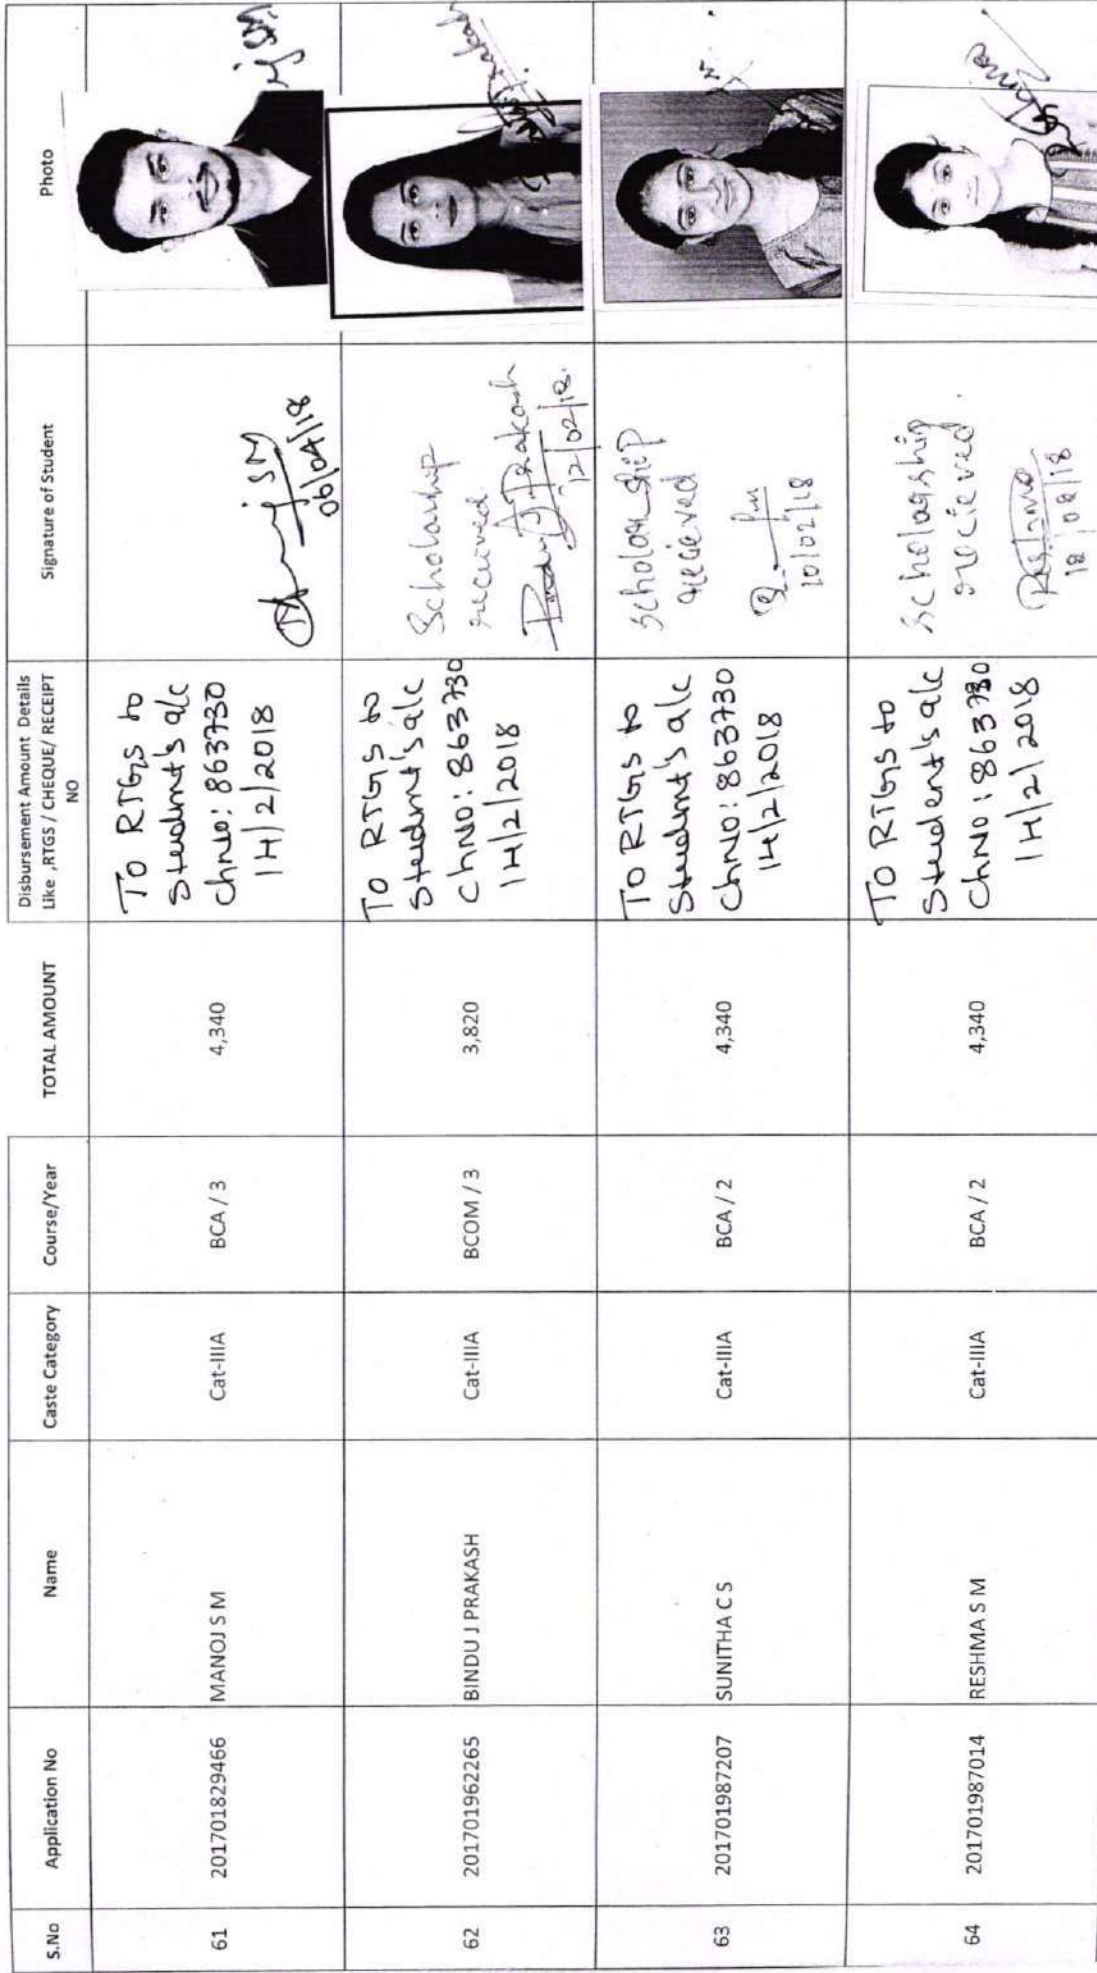 S.No
Application No
Name
Caste Category
Course/Year
TOTAL AMOUNT
Disbursement Amount Details
Like ,RTGS / CHEQUE/ RECEIPT
NO
Signature of Student
Photo
61
201701829466
MANOJ S M
Cat-IIIA
BCA / 3
4,340
To RTGS to
Student's a/c
ChNo: 863730
14/2/2018
06/04/18
62
201701962265
BINDU J PRAKASH
Cat-IIIA
BCOM / 3
3,820
To RTGS to
Student's a/c
ChNO: 863730
14/2/2018
Scholarship
received
Bindu J Prakash
12/02/18.
63
201701987207
SUNITHA C S
Cat-IIIA
BCA / 2
4,340
To RTGS to
Student's a/c
ChNO: 863730
14/2/2018
scholarship
recieved
10/02/18
64
201701987014
RESHMA S M
Cat-IIIA
BCA / 2
4,340
To RTGS to
Student's a/c
ChNO: 863730
14/2/2018
scholarship
recieved.
Reshma
12/02/18
Reshma